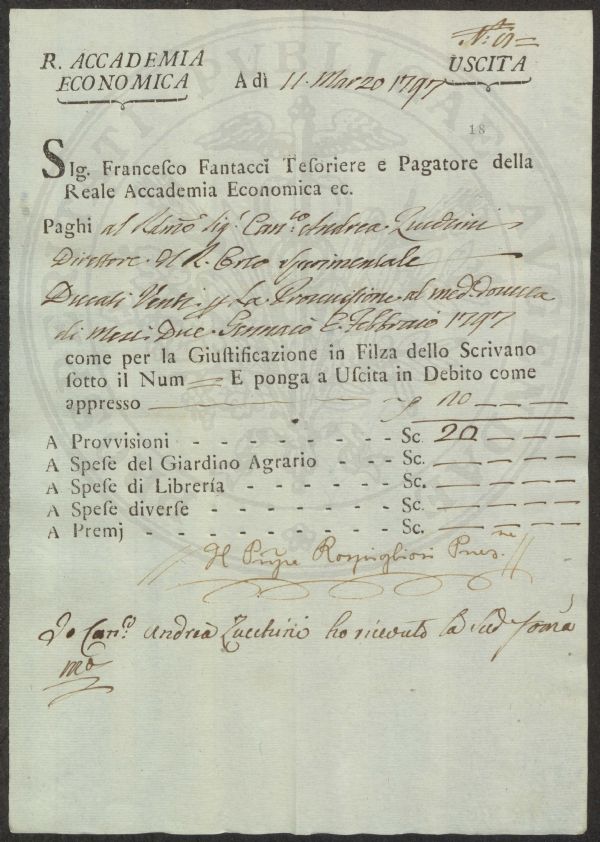 R. ACCADEMIA
ECONOMICA
A dì 11. Marzo 1797
USCITA
18
SIg. Francesco Fantacci Tesoriere e Pagatore della
Reale Accademia Economica ec.
Paghi al Sig.r Can.co Andrea Zucchini
Direttore del R. Orto Sperimentale
Ducati Venti p. La Provvisione al med.o dovuta
di Mesi Due Gennaio e Febbraio 1797
come per la Giustificazione in Filza dello Scrivano
sotto il Num E ponga a Uscita in Debito come
appresso
A Provvisioni - - - - - - - - Sc. 20 — — —
A Spese del Giardino Agrario - - - - Sc. — — — —
A Spese di Librería - - - - - - - Sc. — — — —
A Spese diverse - - - - - - - - Sc. — — — —
A Premj - - - - - - - - - Sc. — — — —
Il Rospigliosi Pres.ne
Io Can.co Andrea Zucchini ho ricevuto la Sud Somma